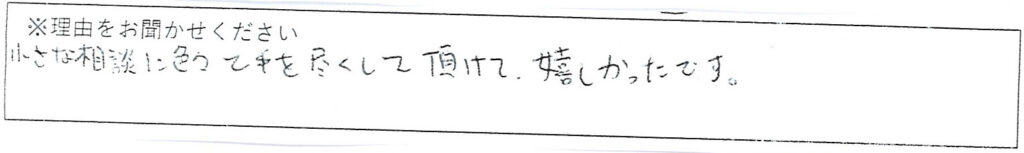 ※理由をお聞かせください
小さな相談に色々て手を尽くして頂けて、嬉しかったです。